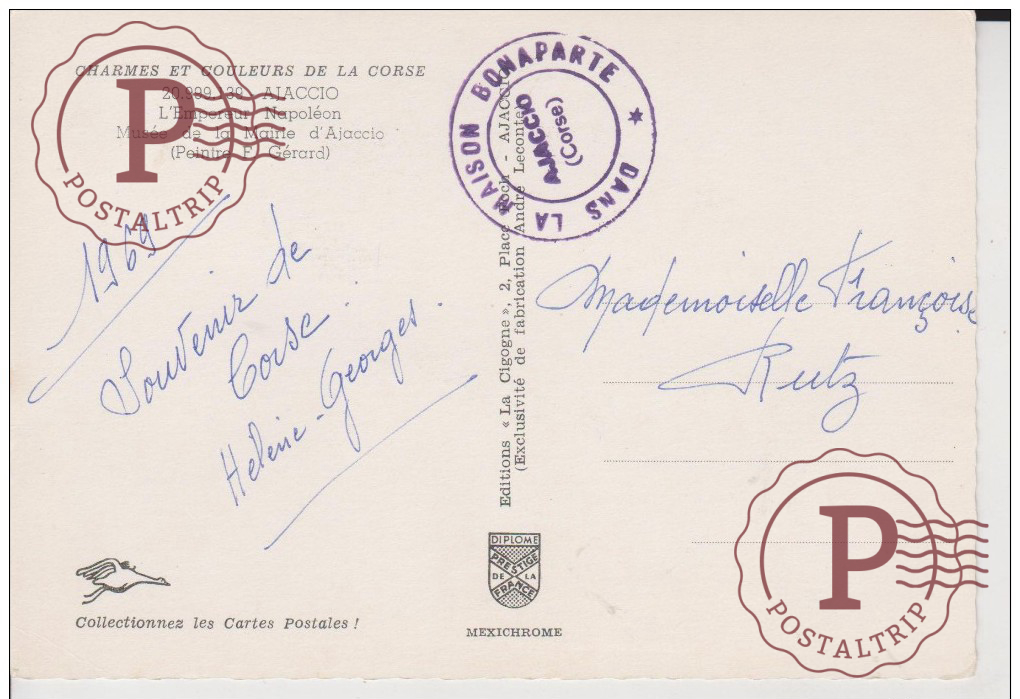 CHARMES ET COULEURS DE LA CORSE
20.999 39 - AJACCIO
L'Empereur Napoléon
Musée de la Mairie d'Ajaccio
(Peintre F. Gérard)
POSTALTRIP
1969
Souvenir de
Corse
Hélène - Georges
Collectionnez les Cartes Postales !
DANS LA MAISON BONAPARTE
AJACCIO
(Corse)
Editions « La Cigogne », 2, Place Foch - AJACCIO
(Exclusivité de fabrication André Leconte)
DIPLOME
PRESTIGE
DE LA
FRANCE
MEXICHROME
Mademoiselle Françoise
Rutz
P
POSTALTRIP